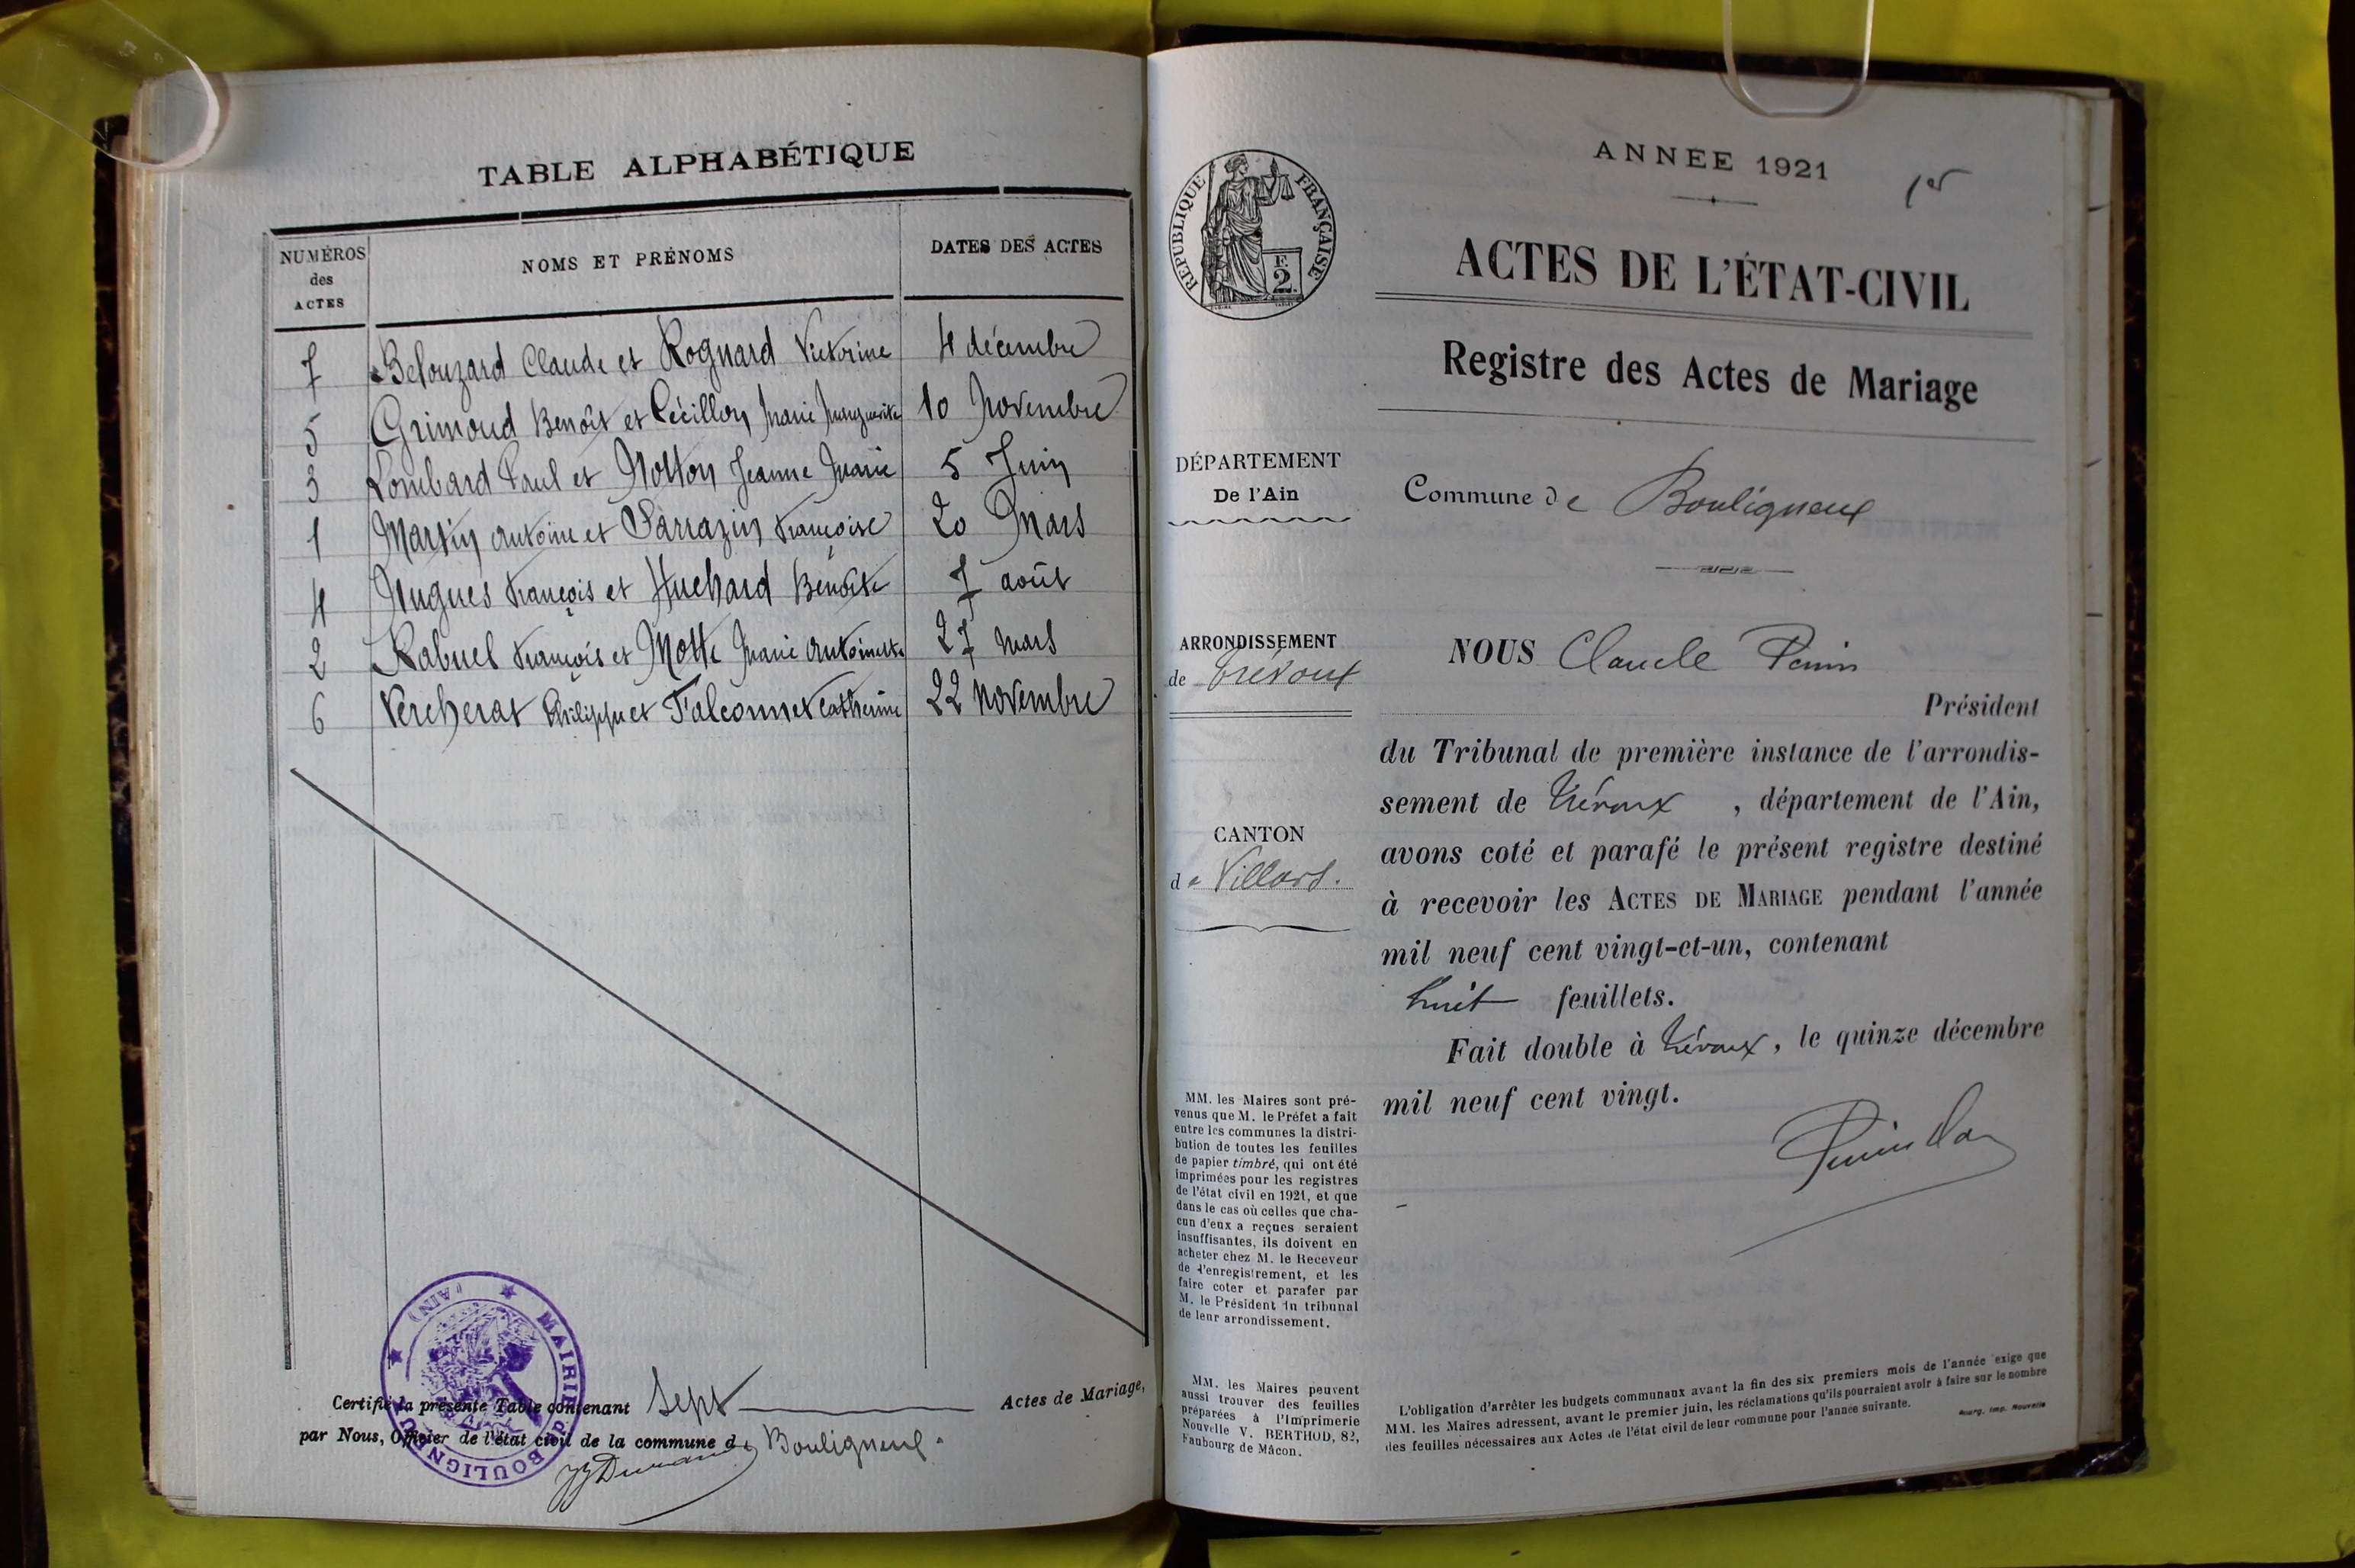 TABLE ALPHABÉTIQUE
NUMÉROS des ACTES
NOMS ET PRÉNOMS
DATES DES ACTES
7 Belouzard Claude et Rognard Victorine 4 décembre
5 Grimoud Benoît et Cécillon Marie Marguerite 10 Novembre
3 Lombard Paul et Notton Jeanne Marie 5 Juin
1 Martin Antoine et Sarrazin Françoise 20 Mars
4 Nugues François et Huchard Benoîte 7 août
2 Rabuel François et Motte Marie Antoinette 27 mars
6 Vercherat Philippe et Falconnet Catherine 22 novembre
Certifié la présente Table contenant sept Actes de Mariage,
par Nous, Officier de l'état civil de la commune de Bouligneux.
MAIRIE DE BOULIGNEUX (AIN)
ANNÉE 1921
1er
RÉPUBLIQUE FRANÇAISE
E.
2.
ACTES DE L'ÉTAT-CIVIL
Registre des Actes de Mariage
DÉPARTEMENT
De l'Ain
Commune de Bouligneux
ARRONDISSEMENT
de Trévoux
CANTON
de Villars.
NOUS Claude Perrin
Président
du Tribunal de première instance de l'arrondis-
sement de Trévoux, département de l'Ain,
avons coté et parafé le présent registre destiné
à recevoir les ACTES DE MARIAGE pendant l'année
mil neuf cent vingt-et-un, contenant
huit feuillets.
Fait double à Trévoux, le quinze décembre
mil neuf cent vingt.
MM. les Maires sont pré-
venus que M. le Préfet a fait
entre les communes la distri-
bution de toutes les feuilles
de papier timbré, qui ont été
imprimées pour les registres
de l'état civil en 1921, et que
dans le cas où celles que cha-
cun d'eux a reçues seraient
insuffisantes, ils doivent en
acheter chez M. le Receveur
de l'enregistrement, et les
faire coter et parafer par
M. le Président du tribunal
de leur arrondissement.
MM. les Maires peuvent
aussi trouver des feuilles
préparées à l'Imprimerie
Nouvelle V. BERTHOD, 82,
Faubourg de Mâcon.
L'obligation d'arrêter les budgets communaux avant la fin des six premiers mois de l'année exige que
MM. les Maires adressent, avant le premier juin, les réclamations qu'ils pourraient avoir à faire sur le nombre
des feuilles nécessaires aux Actes de l'état civil de leur commune pour l'année suivante.
Bourg, Imp. Nouvelle